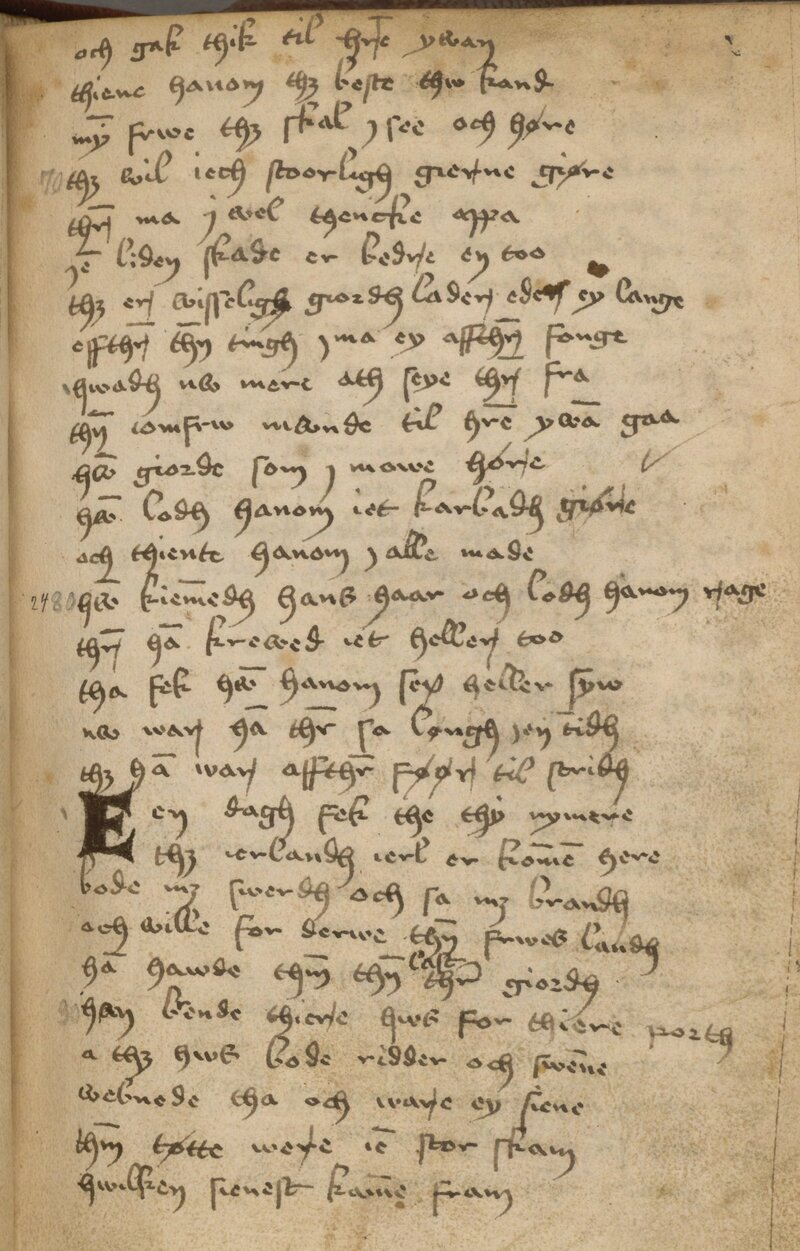 och gak thik til hr̄e ywan
thiene hanom thz beste thw kand
mȳ frwe thz skal j see och høre
70 thz wil iech stoorligh gierne giøre
thr̄ ma j wel thencke oppa
jē liden skade er bedre en too
thz er wisseligh giordh lader eder ey lange
effthr̄ thn̄ tingh j ma ey affthr̄ fonge
hwadh nw mere ath seye thr̄ fra
thn̄ iomfrw mwnde til hr̄ē ywā gaa
hw̄ giorde som j mowe hørre
hw̄ lodh hanom iet karbadh giøre
och thiente hanom j alle made
2480 hw̄ kiem̄edh hans haar och lodh hanom rage
thr̄ hā krewed iet heller too
tha fek hw̄ hanom sex heller syw
nw war hā thr̄ sa løngh jen tidh
thz hā war affthr̄ føør til stridh
Een dagh fek the thy nymere
thz ierlandh ierl er kom̄ē here
bode mz swerdh och sa mz brandh
och wille for derwe thn̄ frwes landh
hā hawde thm̄ thn̄ last thr̄ giordh
90 han brende thiere hws for thiere porth
a thz hws bode ridder och swen̄e
webnede tha och ware ey siene
thm̄ tøtte were iē stor skam
hwilken sienest kam̄e fram